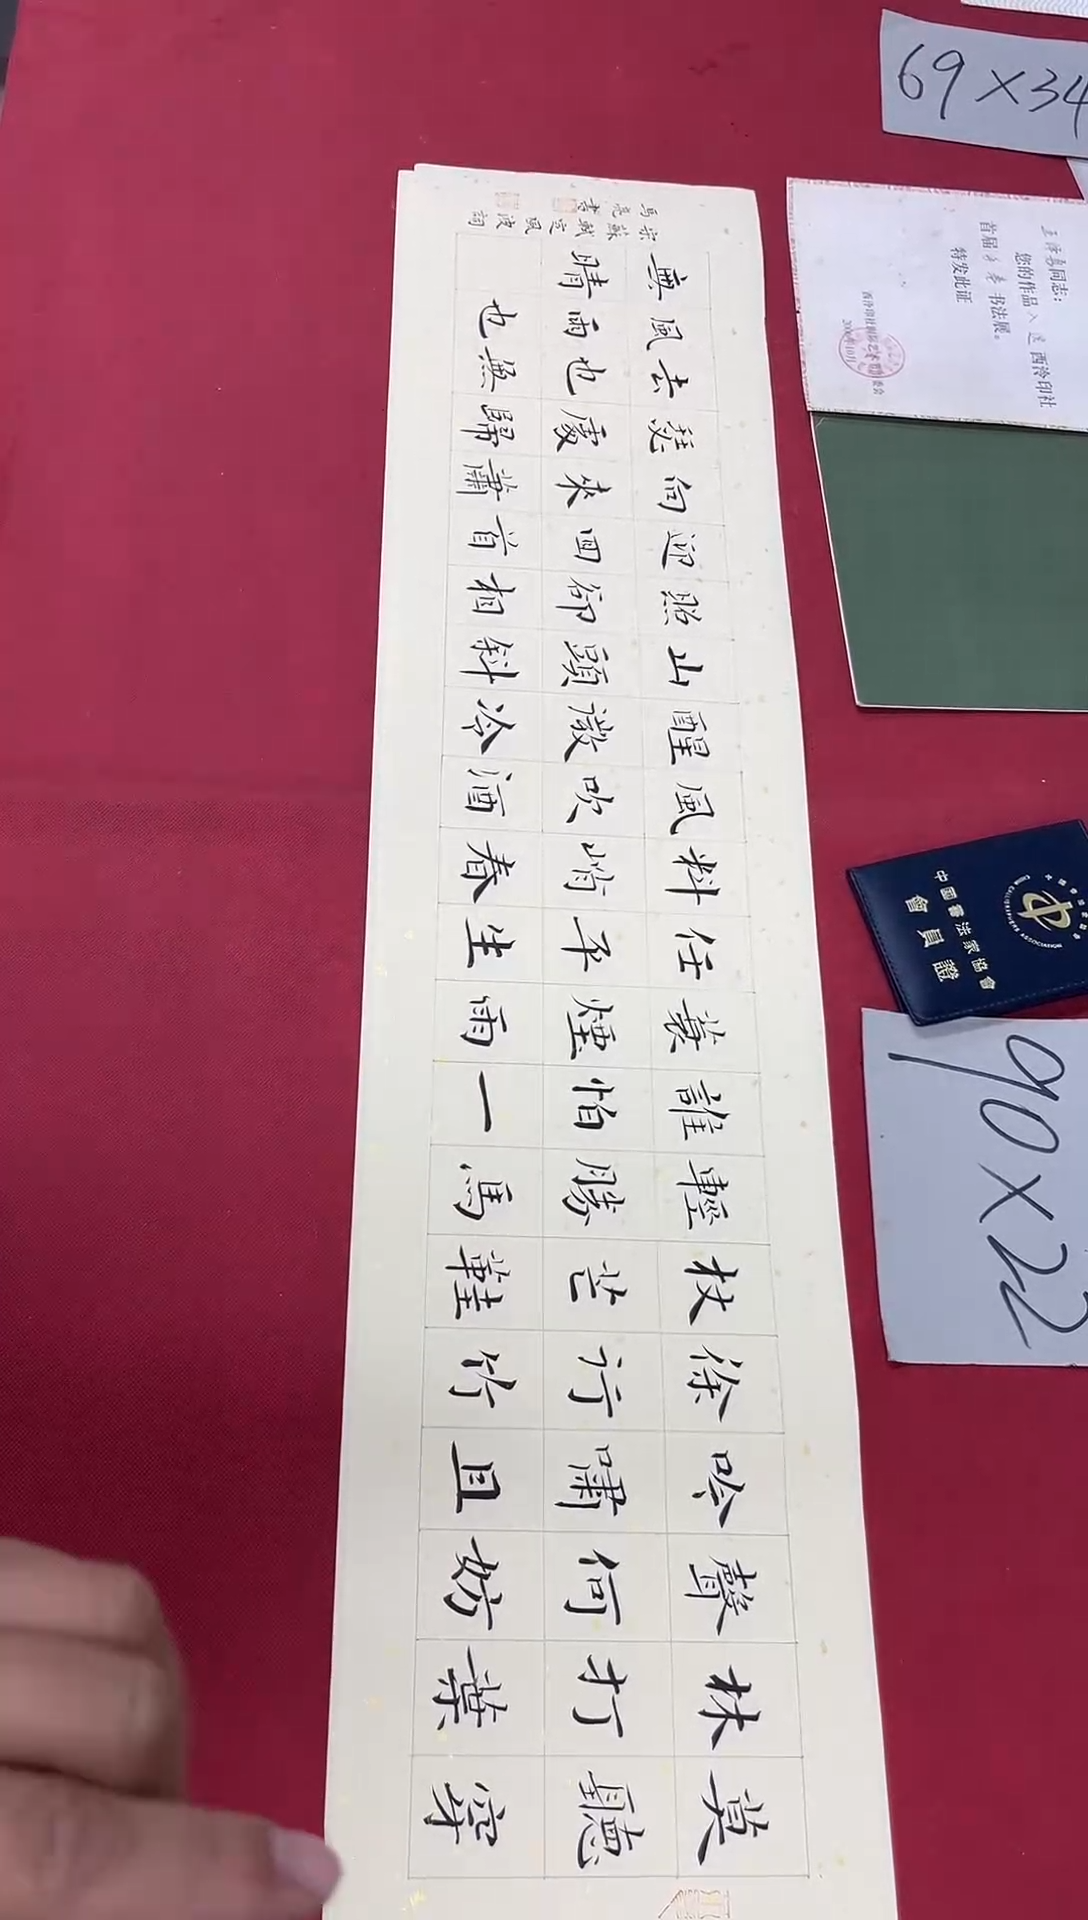 莫聽穿
林打葉
聲何妨
吟嘯且
徐行竹
杖芒鞋
輕勝馬
誰怕一
蓑煙雨
任平生
料峭春
風吹酒
醒微冷
山頭斜
照卻相
迎回首
向來蕭
瑟處歸
去也無
風雨也
無晴
宋蘇軾定風波詞
馬亮書
69×34
同志:
您的作品入选西泠印社
首届手卷书法展。
特发此证
中國書法家協會
會員證
CHINA CALLIGRAPHERS ASSOCIATION
90×22